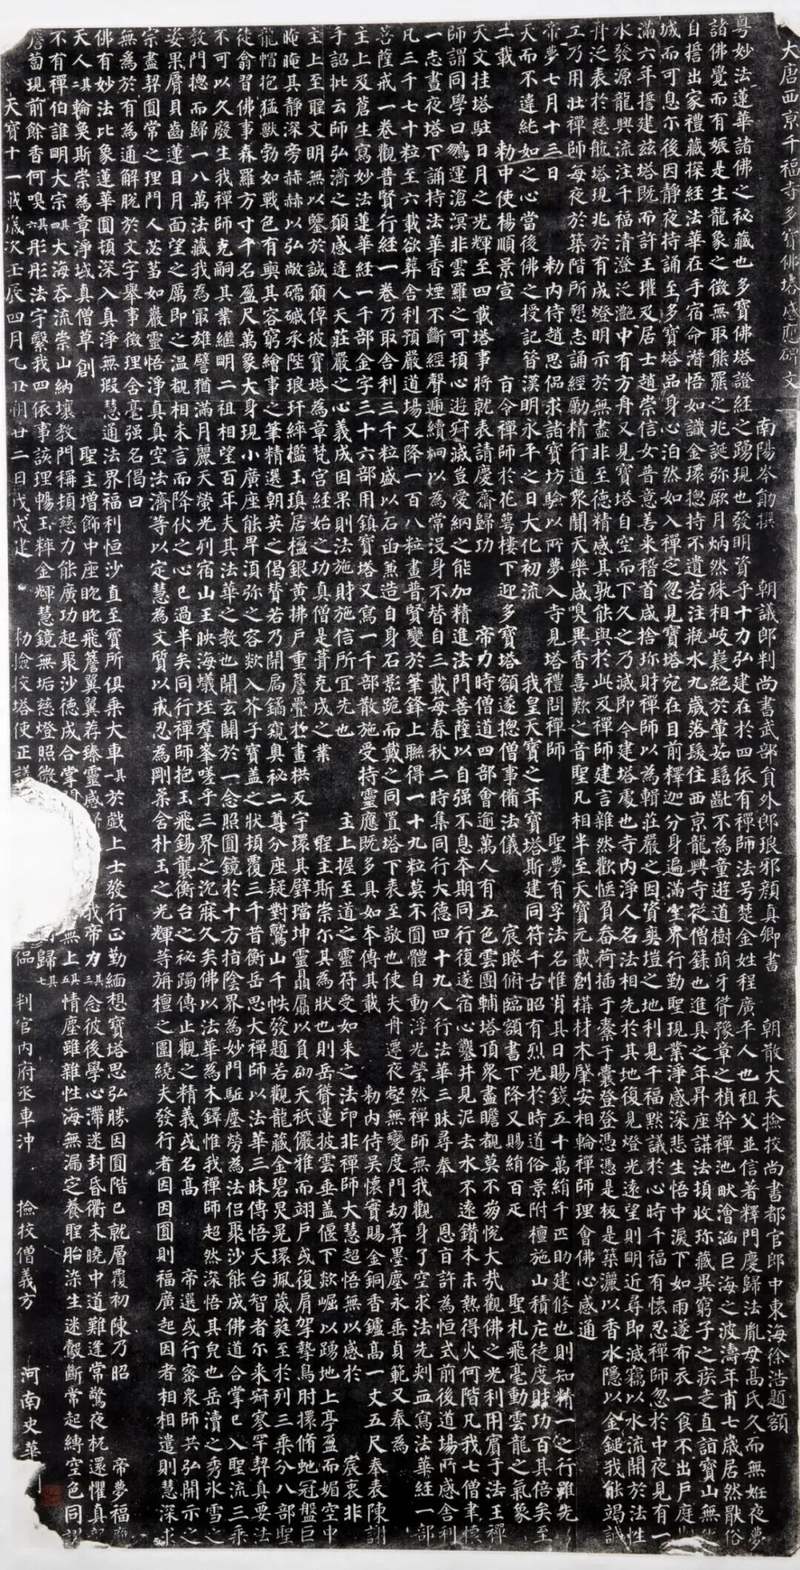 大唐西京千福寺多寶佛塔感應碑文 南陽岑勛撰 朝議郎判尚書武部員外郎琅邪顏真卿書 朝散大夫撿挍尚書都官郎中東海徐浩題額
粵妙法蓮華諸佛之秘藏也多寶佛塔證經之踴現也發明資乎十力弘建在於四依有禪師法号楚金姓程廣平人也祖父並信著釋門慶歸法胤母高氏久而無姙夜夢
諸佛覺而有娠是生龍象之徵無取熊羆之兆誕弥厥月炳然殊相岐嶷絕於葷茹髫齔不為童遊道樹萌牙聳豫章之楨幹禪池畎澮涵巨海之波濤年甫七歲居然猒俗
自誓出家禮藏探經法華在手宿命潛悟如識金環揔持不遺若注瓶水九歲落髮住西京龍興寺從僧籙也進具之年昇座講法頓收珎藏異窮子之疾走直詣寶山無化
城而可息尒後因靜夜持誦至多寶塔品身心泊然如入禪㝎忽見寶塔宛在目前釋迦分身遍滿空界行勤聖現業淨感深悲生悟中淚下如雨遂布衣一食不出戶庭期
滿六年誓建茲塔既而許王瓘及居士趙崇信女普意善来稽首咸捨珎財禪師以為輯莊嚴之因資爽塏之地利見千福默議於心時千福有懷忍禪師忽於中夜見有一
水發源龍興流注千福清澄泛灧中有方舟又見寶塔自空而下久之乃滅即今建塔處也寺內淨人名法相先於其地復見燈光遠望則明近尋即滅竊以水流開於法性
舟泛表於慈航塔現兆於有成燈明示於無盡非至德精感其孰能與於此及禪師建言雜然歡愜負畚荷插于橐于囊登登憑憑是板是築灑以香水隱以金鎚我能竭誠
工乃用壯禪師每夜於築階所懇志誦經勵精行道眾聞天樂咸嗅異香喜歎之音聖凡相半至天寶元載創構材木肇安相輪禪師理會佛心感通
帝夢七月十三日 勑內侍趙思偘求諸寶坊驗以所夢入寺見塔禮問禪師 聖夢有孚法名惟肖其日賜錢五十萬絹千匹助建修也則知精一之行雖先
天而不違純如之心當後佛之授記昔漢明永平之日大化初流 我皇天寶之年寶塔斯建同符千古昭有烈光於時道俗景附檀施山積庀徒度財功百其倍矣至
二載 勑中使楊順景宣 旨令禪師於花萼樓下迎多寶塔額遂揔僧事備法儀 宸睠俯臨額書下降又賜絹百匹 聖札飛毫動雲龍之氣象
天文挂塔駐日月之光輝至四載塔事將就表請慶齋歸功 帝力時僧道四部會逾萬人有五色雲團輔塔頂眾盡瞻覩莫不崩悅大哉觀佛之光利用賓于法王禪
師謂同學曰鵬運滄溟非雲羅之可頓心遊寂滅豈愛網之能加精進法門菩薩以自强不息本期同行復遂宿心鑿井見泥去水不遠鑽木未熱得火何階凡我七僧聿懷
一志晝夜塔下誦持法華香煙不斷經聲遞續炯以為常沒身不替自三載每春秋二時集同行大德四十九人行法華三昧尋奉 恩旨許為恒式前後道場所感舍利
凡三千七十粒至六載欲葬舍利預嚴道場又降一百八粒畫普賢變於筆鋒上聯得一十九粒莫不圓體自動浮光瑩然禪師無我觀身了空求法先刺血寫法華經一部
菩薩戒一卷觀普賢行經一卷乃取舍利三千粒盛以石函兼造自身石影跪而戴之同置塔下表至敬也使夫舟遷夜壑無變度門劫算墨塵永垂貞範又奉為
主上及蒼生寫妙法蓮華經一千部金字三十六部用鎮寶塔又寫一千部散施受持靈應既多具如本傳其載 勑內侍吳懷實賜金銅香鑪高一丈五尺奉表陳謝
手詔批云師弘濟之願感達人天莊嚴之心義成因果則法施財施信所宜先也 主上握至道之靈符受如来之法印非禪師大慧超悟無以感於 宸衷非
主上至聖文明無以鑒於誠願倬彼寶塔為章梵宮經始之功真僧是葺克成之業 聖主斯崇尒其為狀也則岳聳蓮披雲垂蓋偃下欻崛以踴地上亭盈而媚空中
晻晻其靜深旁赫赫以弘敞礝磩承陛琅玕綷檻玉瑱居楹銀黃拂戶重簷疊於畫栱反宇環其壁璫坤靈贔屭以負砌天祇儼雅而翊戶或復肩挐摯鳥肘擐脩蛇冠盤巨
龍帽抱猛獸勃如戰色有奭其容窮繪事之筆精選朝英之偈贊若乃開扃鐍窺奧秘二尊分座疑對鷲山千帙發題若觀龍藏金碧炅晃環珮葳蕤至於列三乘分八部聖
徒翕習佛事森羅方寸千名盈尺萬象大身現小廣座能卑須弥之容欻入芥子寶蓋之狀頓覆三千昔衡岳思大禪師以法華三昧傳悟天台智者尒来寂寥罕契真要法
不可以久廢生我禪師克嗣其業継明二祖相望百年夫其法華之教也開玄關於一念照圓鏡於十方指陰界為妙門駈塵勞為法侶聚沙能成佛道合掌已入聖流三乘
教門揔而歸一八萬法藏我為冣雄譬猶滿月麗天螢光列宿山王映海蟻垤群峯嗟乎三界之沉寐久矣佛以法華為木鐸惟我禪師超然深悟其皃也岳瀆之秀冰雪之
姿果脣貝齒蓮目月面望之厲即之溫覩相未言而降伏之心已過半矣同行禪師抱玉飛錫襲衡台之秘躅傳止觀之精義或名高 帝選或行密眾師共弘開示之
宗盡契圓常之理門人苾蒭如巖靈悟淨真真空法濟等以㝎慧為文質以戒忍為剛柔含朴玉之光輝等旃檀之圍繞夫發行者因因圓則福廣起因者相相遣則慧深求
無為於有為通解脫於文字舉事徵理含毫強名偈曰
佛有妙法比象蓮華圓頓深入真淨無瑕慧通法界福利恒沙直至寶所俱乘大車其一於戲上士發行正勤緬想寶塔思弘勝因圓階已就層覆初陳乃昭 帝夢福應
天人其二輪奐斯崇為章淨域真僧草創 聖主增飾中座眈眈飛簷翼翼荐臻靈感 我帝力其三念彼後學心滯迷封昏衢未曉中道難逢常驚夜枕還懼真
不有禪伯誰明大宗其四大海吞流崇山納壤教門稱頓慈力能廣功起聚沙德成合掌 無上其五情塵雖雜性海無漏㝎養聖胎染生迷鷇斷常起縛空色同謬
薝蔔現前餘香何嗅其六彤彤法宇繄我四依事該理暢玉粹金輝慧鏡無垢慈燈照微 歸其七
天寶十一載歲次壬辰四月乙丑朔廿二日戊戌建 勑撿挍塔使正議 判官內府丞車沖 撿挍僧義方 河南史華